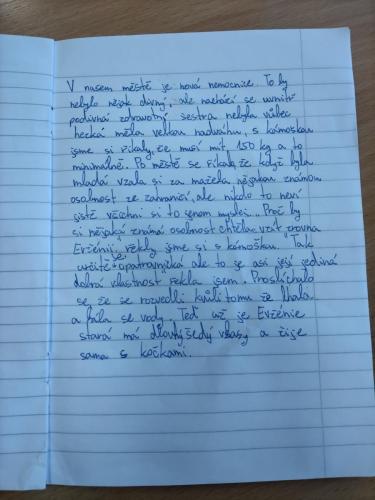 V našem městě je nová nemocnice. To by
nebylo nějak divný, ale nachází se uvnitř
podivná zdravotní sestra nebyla vůbec
hezká měla velkou nadváhu, s kámoškou
jsme si říkaly, že musí mít 150 kg a to
minimálně. Po městě se říkalo, že když byla
mladá vzala si za manžela nějakou známou
osobnost ze zahraničí, ale nikdo to neví
jistě všichni si to jenom myslej. „Proč by
si nějaká známá osobnost chtěla vzít zrovna
Evženii" řekly jsme si s kámoškou. „Tak
určitě je opatrovnická ale to je asi její jediná
dobrá vlastnost řekla jsem. Proslýchalo
se že se rozvedli kvůli tomu že lhala
a bála se vody. Teď už je Evženie
stará má dlouhý šedý vlasy a žije
sama s kočkami.